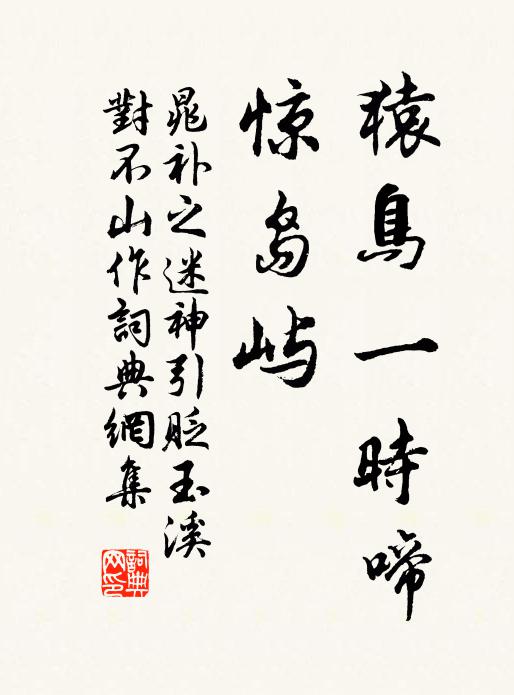 猿鳥一時啼
惊岛屿
晁补之迷神引贬玉溪
對不山作詞典網集
詞典网印